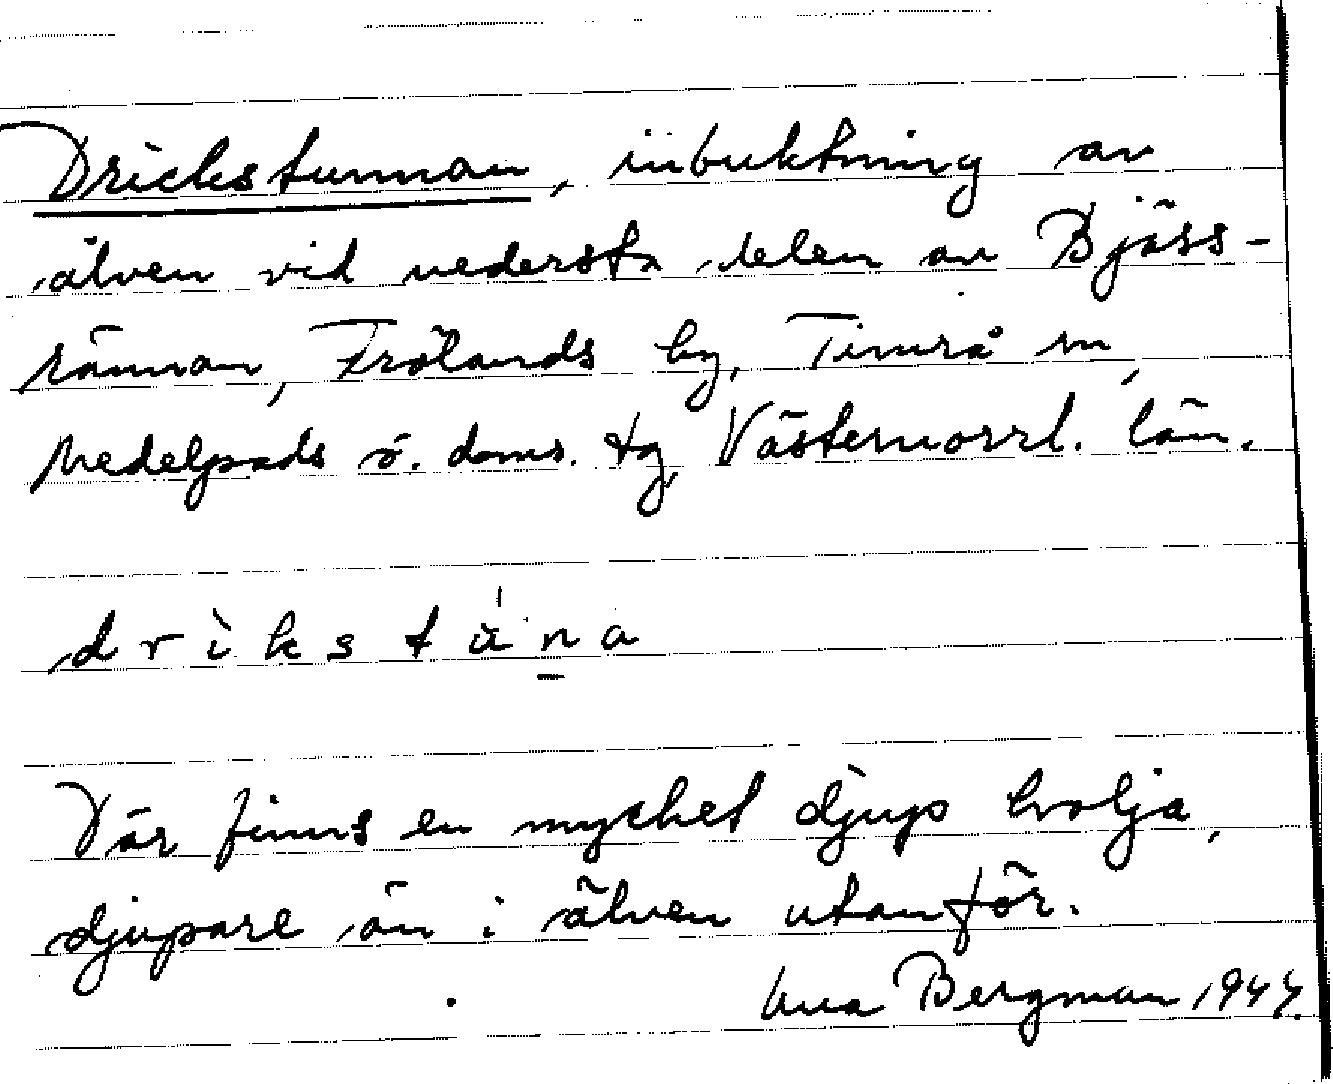 Drickstunnan, inbuktning av
älven vid nedersta delen av Bjäss-
rännan, Frölands by, Timrå sn,
Medelpads ö. doms. tg, Västernorrl. län.
drìkstùna
Där finns en mycket djup holja,
djupare än i älven utanför.
Bergman 1944.